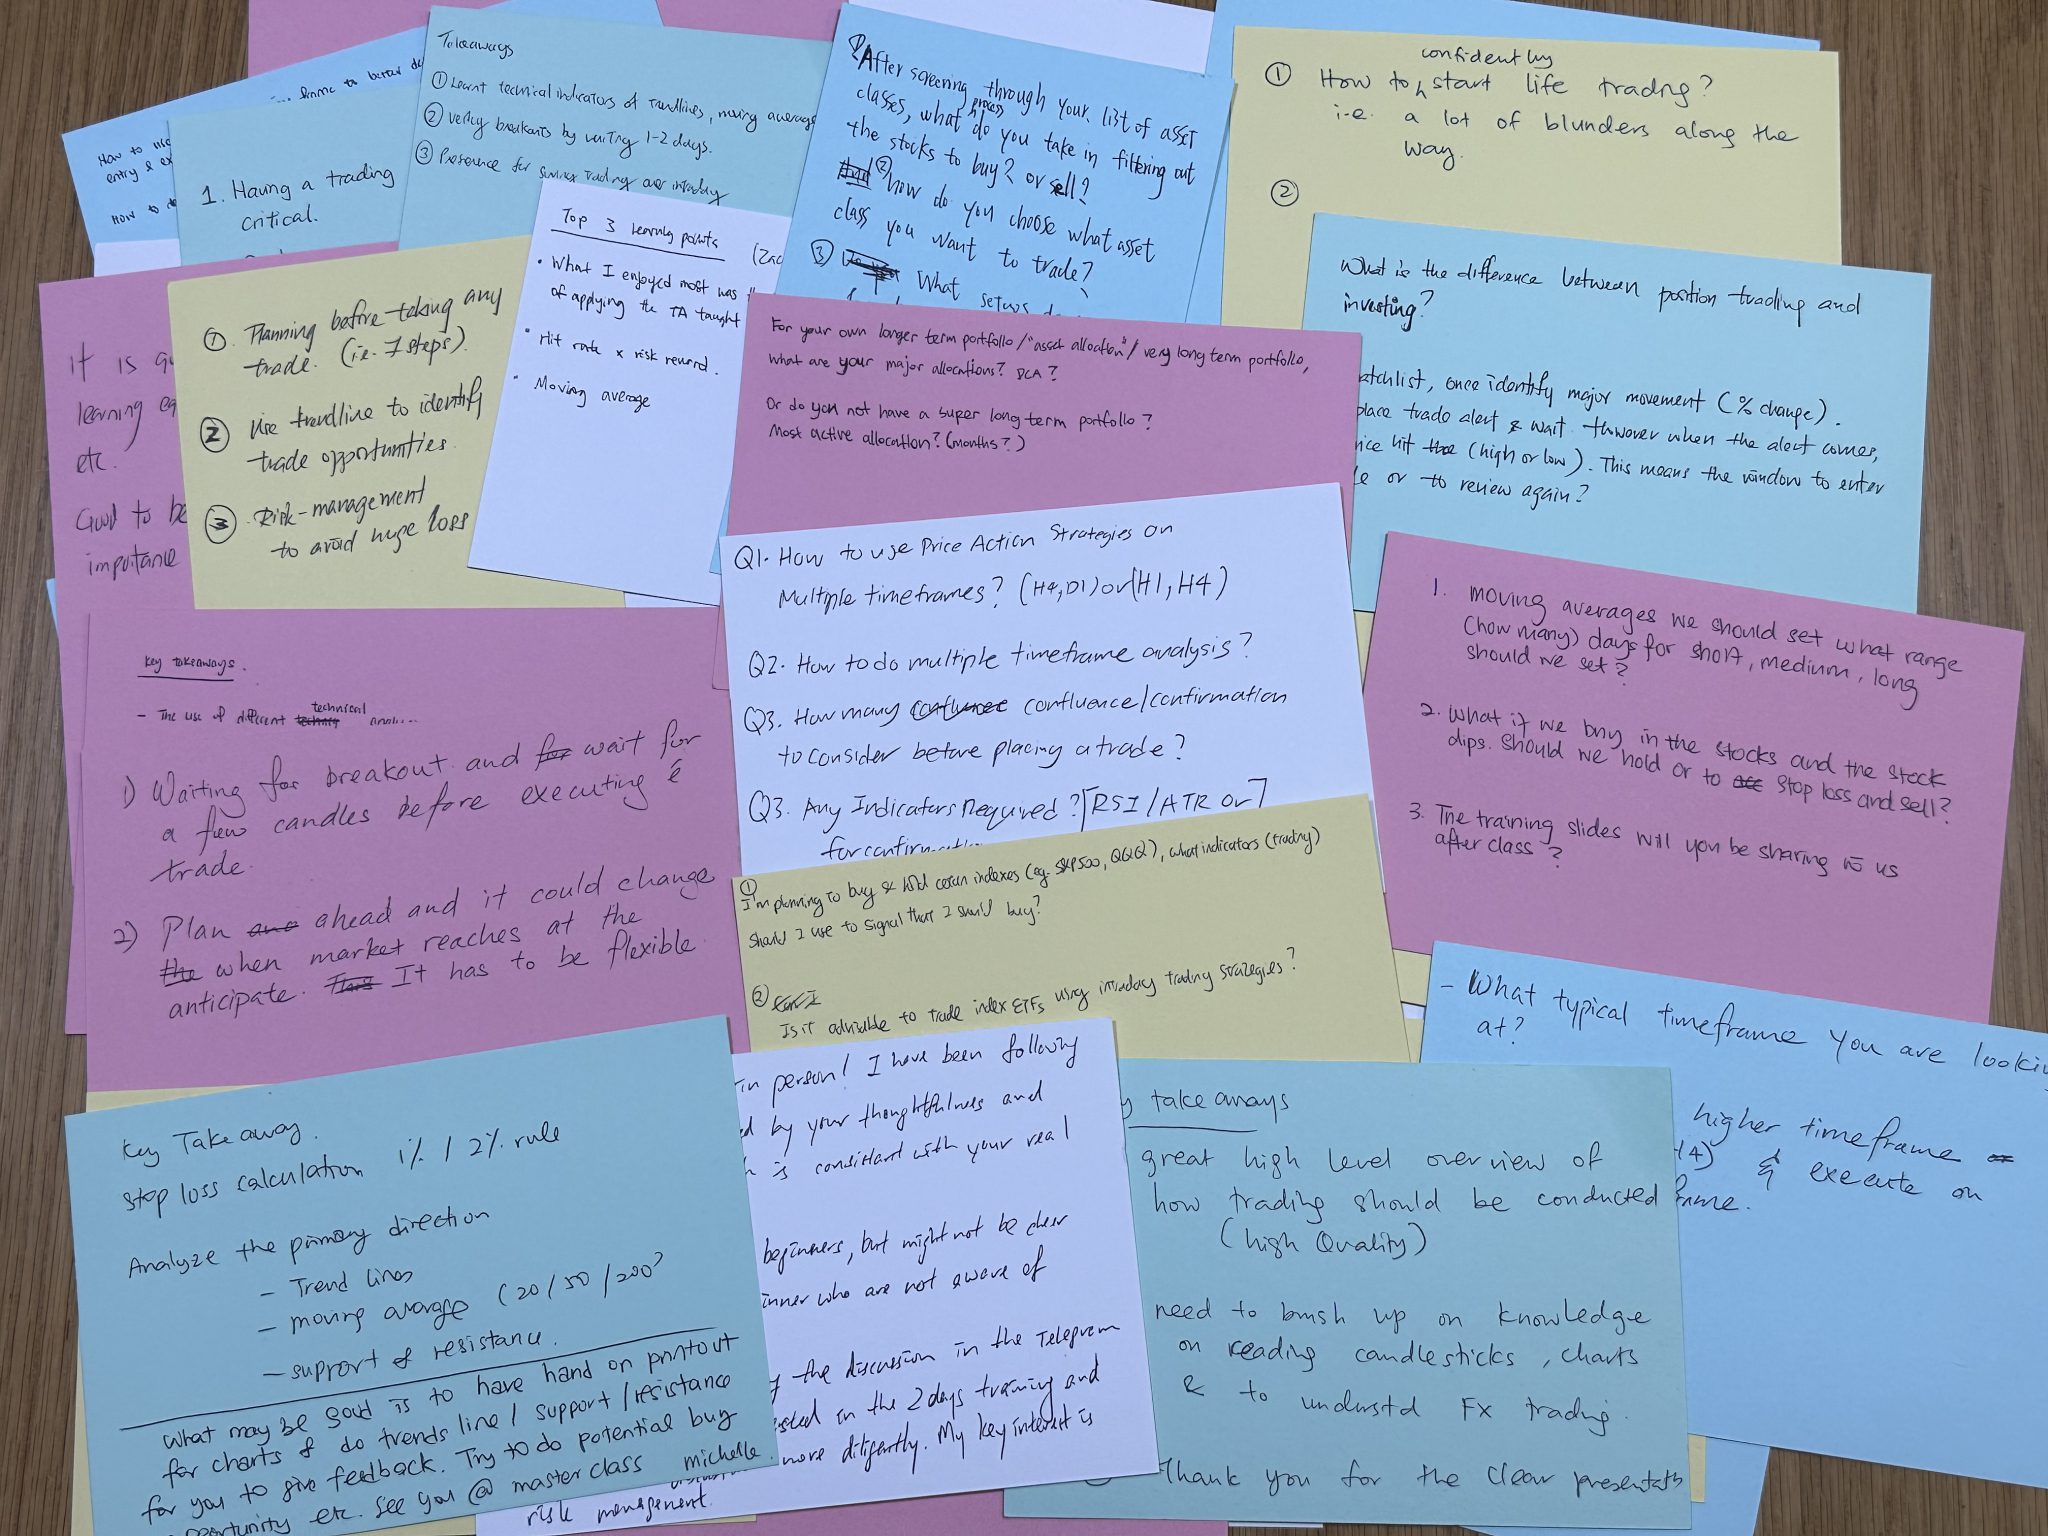 How to
entry & ex
How to
1. Having a trading
critical.
Takeaways
① Learnt technical indicators of trendlines, moving average
② Verify breakouts by waiting 1-2 days.
③ for swing trading over intraday
① After screening through your list of asset
classes, what process do you take in filtering out
the stocks to buy? or sell?
② how do you choose what asset
class you want to trade?
③ What setups
① How to confidently start life trading?
i.e. a lot of blunders along the
way.
②
What is the difference between position trading and
investing?
watchlist, once identify major movement (% change).
place trade alert & wait. However when the alert comes,
price hit (high or low). This means the window to enter
or to review again?
It is
learning
etc.
Good to be
importance
①. Planning before taking any
trade. (i.e. 7 steps).
② Use trendline to identify
trade opportunities.
③. Risk-management
to avoid huge loss
Top 3 learning points
• What I enjoyed most was
of applying the TA taught
• Hit rate x risk reward.
• Moving average
For your own longer term portfolio / "asset allocation" / very long term portfolio,
what are your major allocations? DCA?
Or do you not have a super long term portfolio?
Most active allocation? (months?)
Q1. How to use Price Action Strategies on
Multiple timeframes? (H4, D1) or (H1, H4)
Q2. How to do multiple timeframe analysis?
Q3. How many confluence/confirmation
to consider before placing a trade?
Q3. Any Indicators Required? [RSI/ATR or]
for
1. moving averages we should set what range
(how many) days for short, medium, long
should we set?
2. What if we buy in the stocks and the stock
dips. Should we hold or to stop loss and sell?
3. The training slides will you be sharing to us
after class?
Key takeaways.
- The use of different technical
1) Waiting for breakout and wait for
a few candles before executing
trade.
2) Plan ahead and it could change
when market reaches at the
anticipate. It has to be flexible
① I'm planning to buy & hold certain indexes (eg. S&P500, QQQ), what indicators (trading)
should I use to signal that I should buy?
② Is it advisable to trade index ETFs using intraday trading strategies?
- What typical timeframe you are looking
at?
higher timeframe
& execute on
Key Take away.
stop loss calculation 1% / 2% rule
Analyze the primary direction
- Trend lines
- moving average (20/50/200)
- support & resistance.
What may be good is to have hand on printout
for charts & do trends line / support / resistance
for you to give feedback. Try to do potential buy
opportunity etc. See you @ masterclass michelle.
in person! I have been following
by your thoughtfulness and
is consistant with your real
beginners, but might not be clear
who are not aware of
the discussion in the Telegram
in the 2 days training and
more diligently. My key interest is
risk management.
take aways
great high level overview of
how trading should be conducted
(high Quality)
need to brush up on knowledge
on reading candlesticks, charts
& to understd FX trading.
Thank you for the clear presentatn